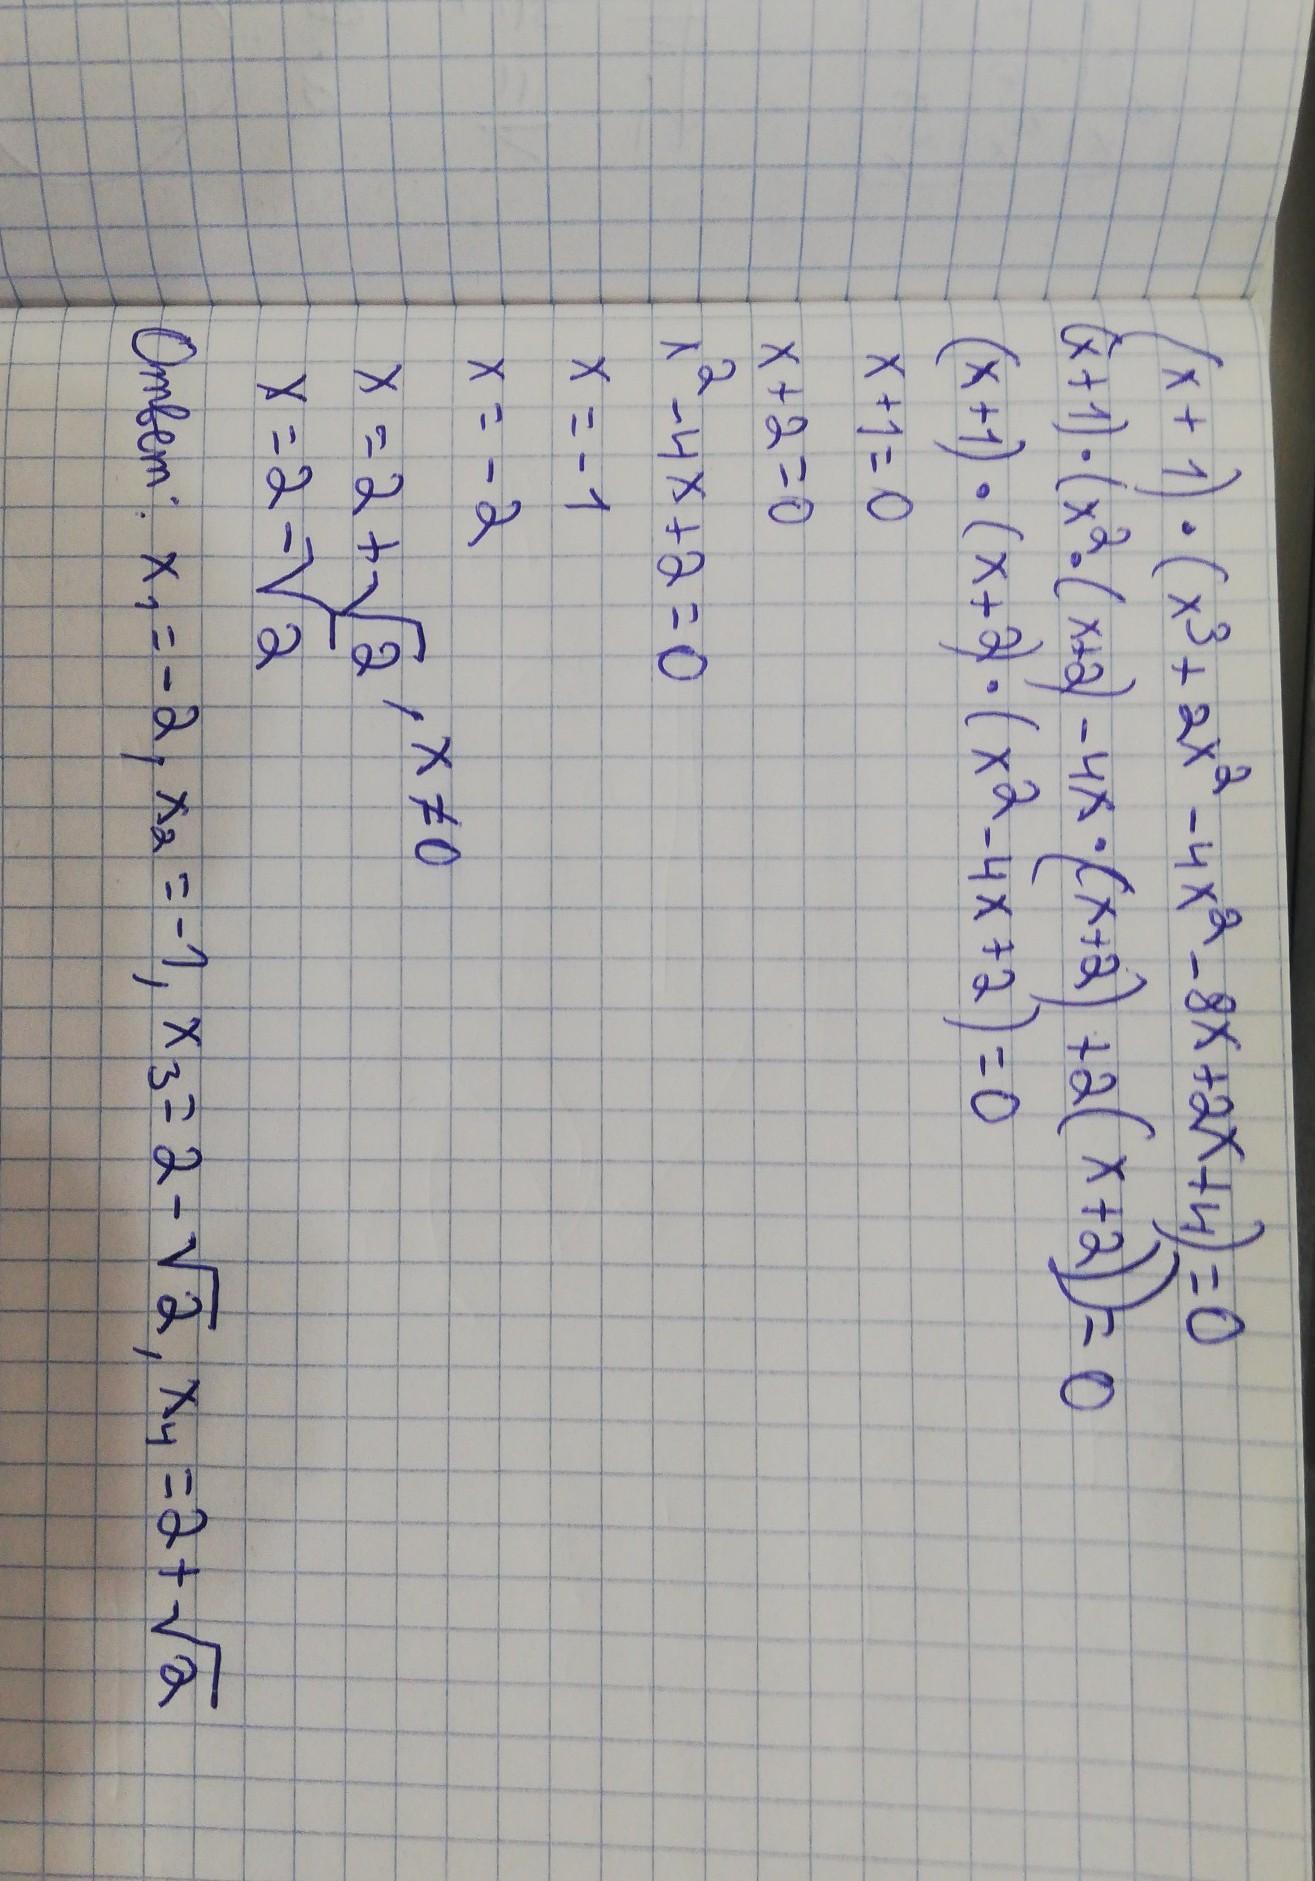 (x+1)·(x³+2x²-4x²-8x+2x+4)=0
(x+1)·(x²·(x+2)-4x·(x+2)+2(x+2))=0
(x+1)·(x+2)·(x²-4x+2)=0
x+1=0
x+2=0
x²-4x+2=0
x=-1
x=-2
x=2+√2, x≠0
x=2-√2
Ответ: x₁=-2, x₂=-1, x₃=2-√2, x₄=2+√2